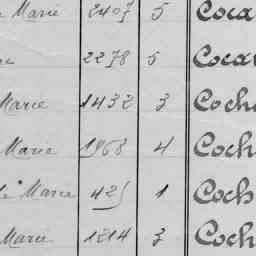 Marie 2407 5 Coca
2278 5 Coca
Marie 1432 3 Coch
Marie 1968 4 Coch
Marie 425 1 Coch
Marie 1214 3 Coch